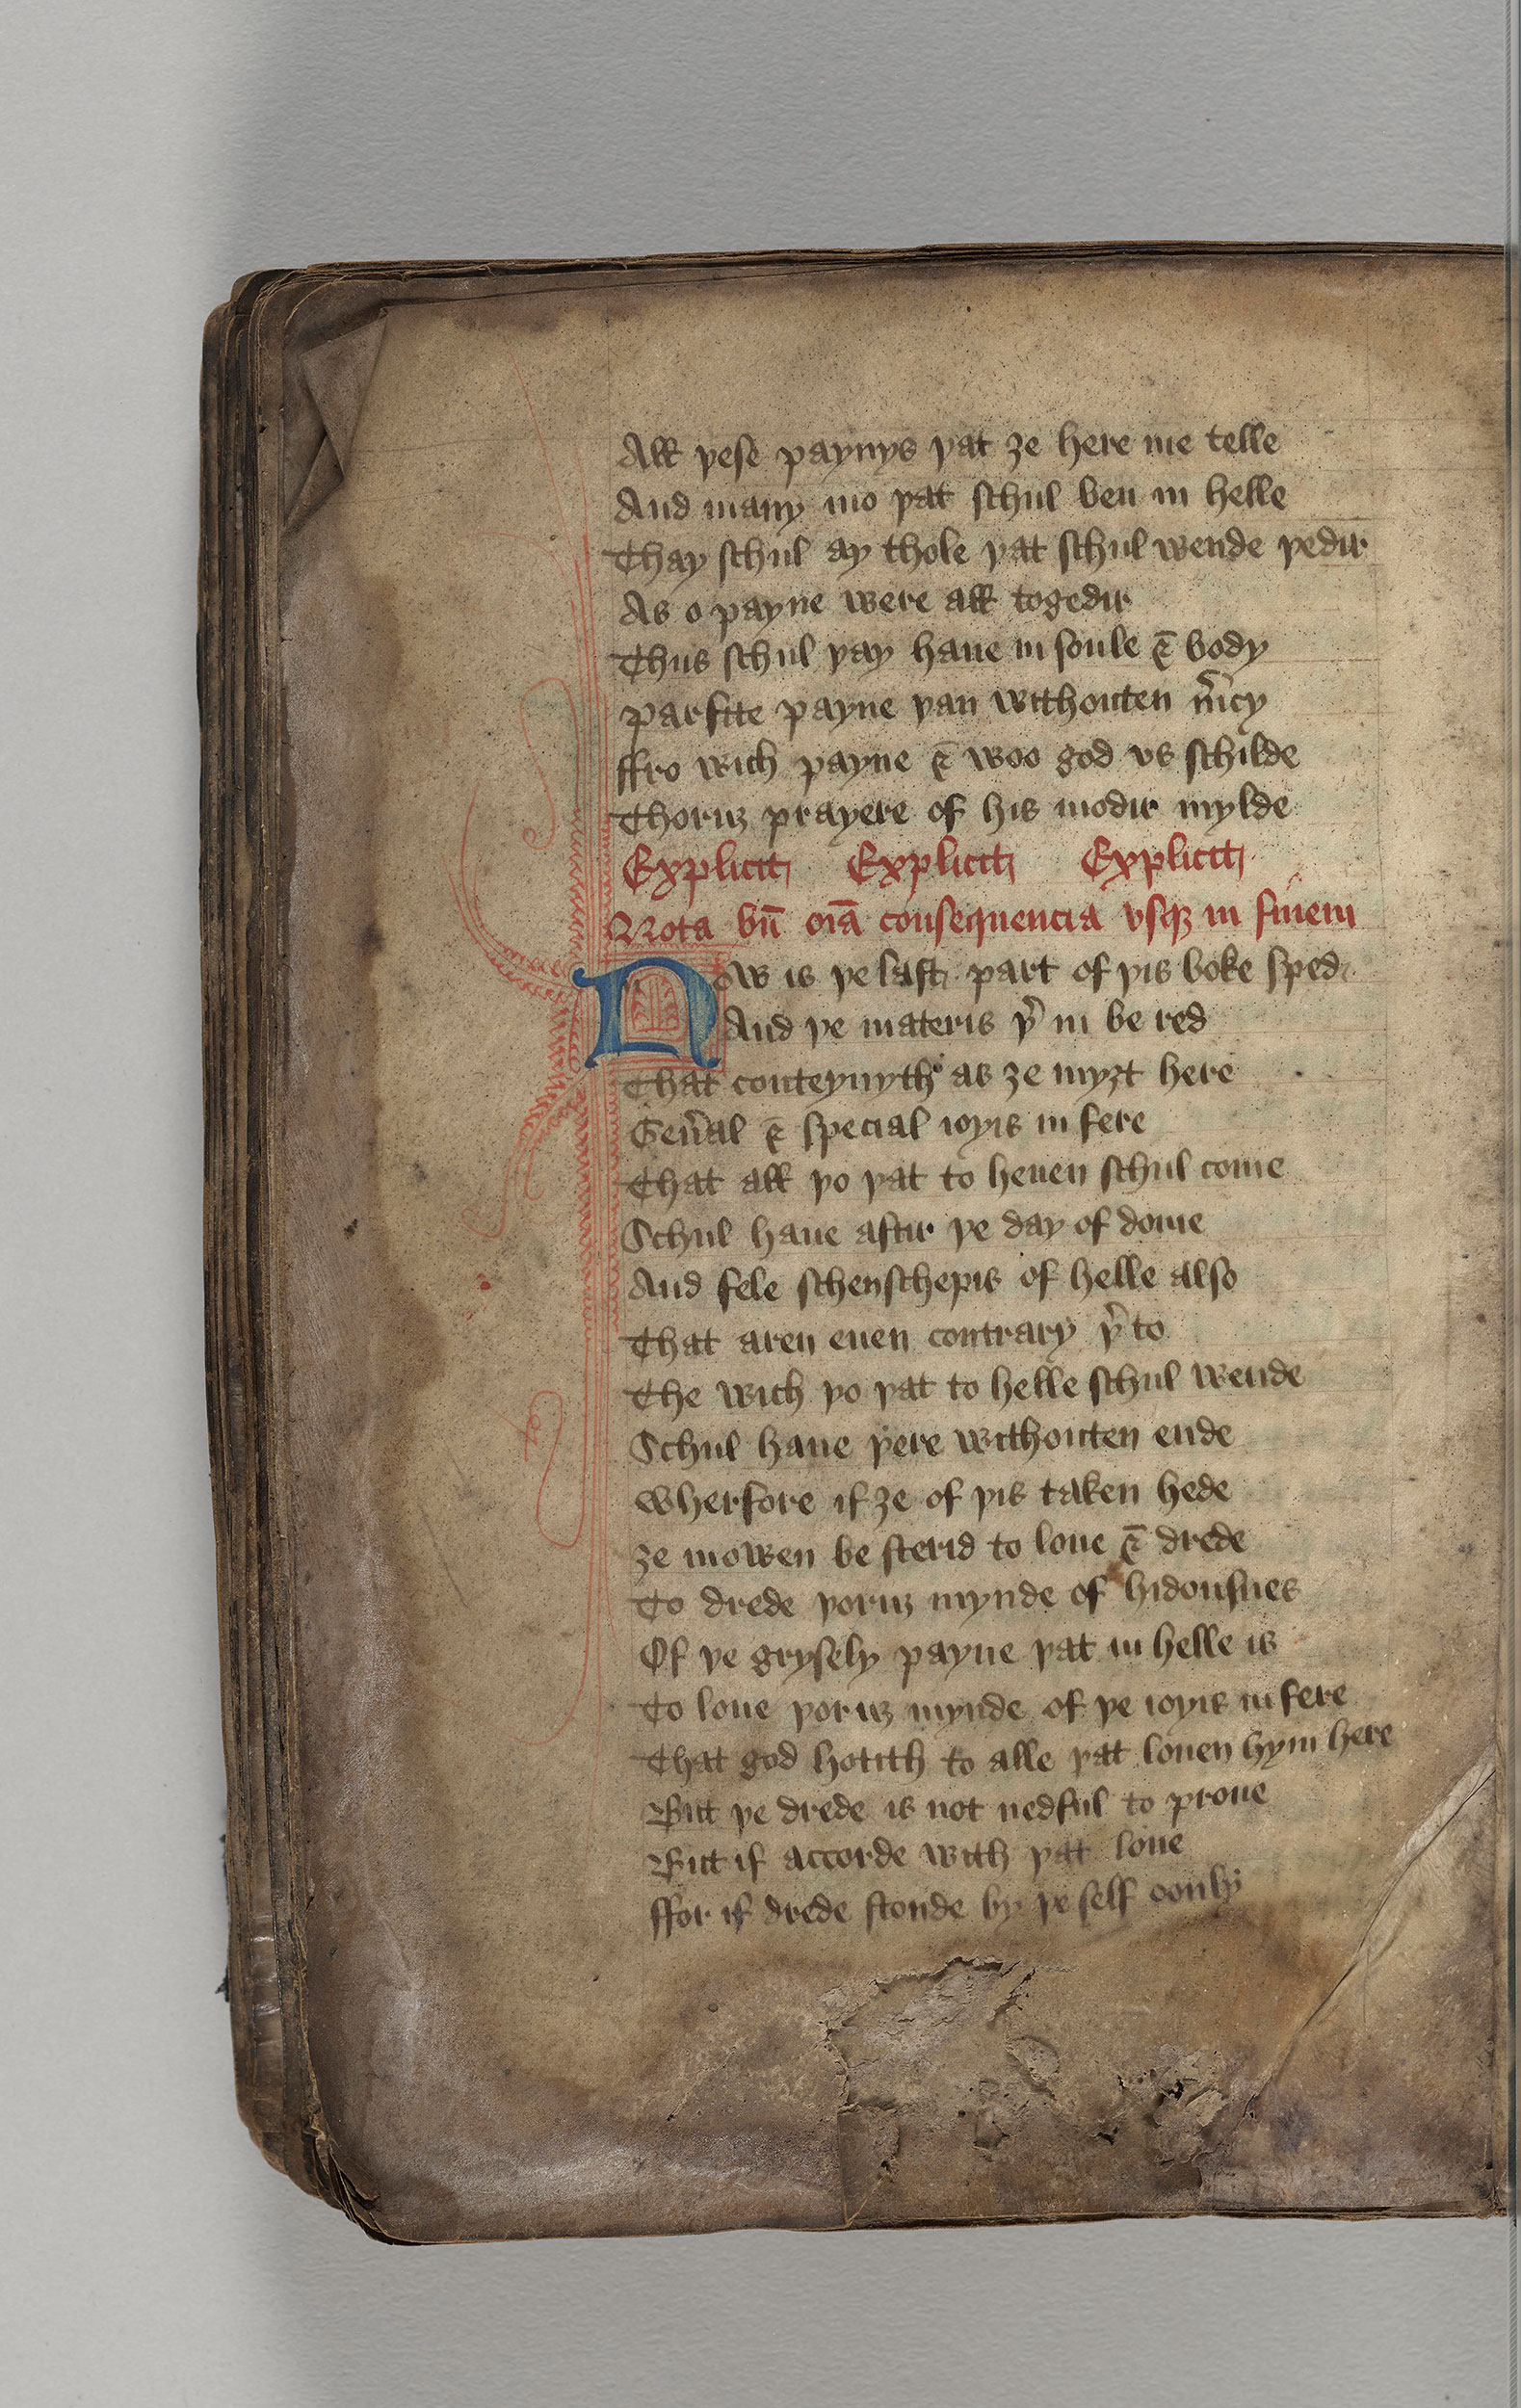 All þese paynys þat ȝe here me telle
And many mo þat schul ben in helle
Thay schul ay thole þat schul wende þedir
As o payne were all togedir
Thus schul þay haue in soule & body
Parfite payne þan withouten m̄cy
ffro wich payne & woo god vs schilde
Thoruȝ prayere of his modir mylde
Explicit Explicit Explicit
Nota bn̄ oīa consequencia vsqȝ in finem
Now is þe last part of þis boke sped
And þe materis þ͛ in be red
That conteynyth as ȝe myȝt here
Gen͛al & special ioyis in fere
That all þo þat to heuen schul come
Schul haue aftir þe day of dome
And fele schenschepis of helle also
That aren euen contrary þ͛to
The wich þo þat to helle schul wende
Schul haue þere withouten ende
Wherfore if ȝe of þis taken hede
ȝe mowen be sterid to loue & drede
To drede þoruȝ mynde of hidousnes
Of þe grysely payne þat in helle is
To loue þoruȝ mynde of þe ioyis in fere
That god hotith to alle þat louen hym here
But þe drede is not nedful to proue
But if accorde with þat loue
ffor if drede stonde by þe self oonly